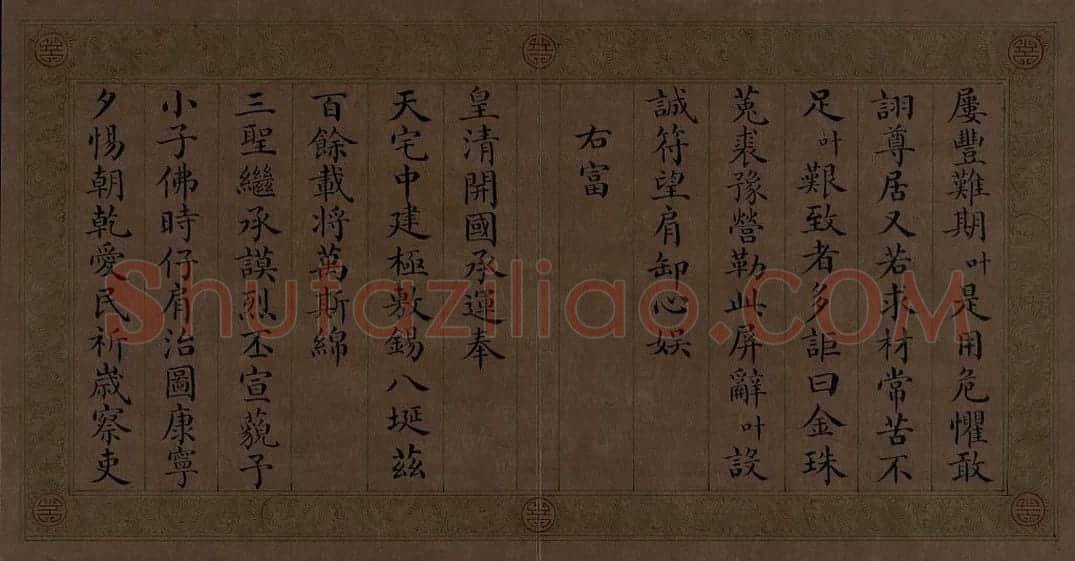 屢豐難期叶是用危懼敢
詡尊居又若求材常苦不
足叶艱致者多詎曰金珠
菟裘豫營勒此屏辭叶設
誠符望肩卸心娛
右富
皇清開國承運奉
天宅中建極敷錫八埏茲
百餘載將萬斯綿
三聖繼承謨烈丕宣藐予
小子佛時仔肩治圖康寧
夕惕朝乾愛民祈歲察吏
Shufaziliao.COM